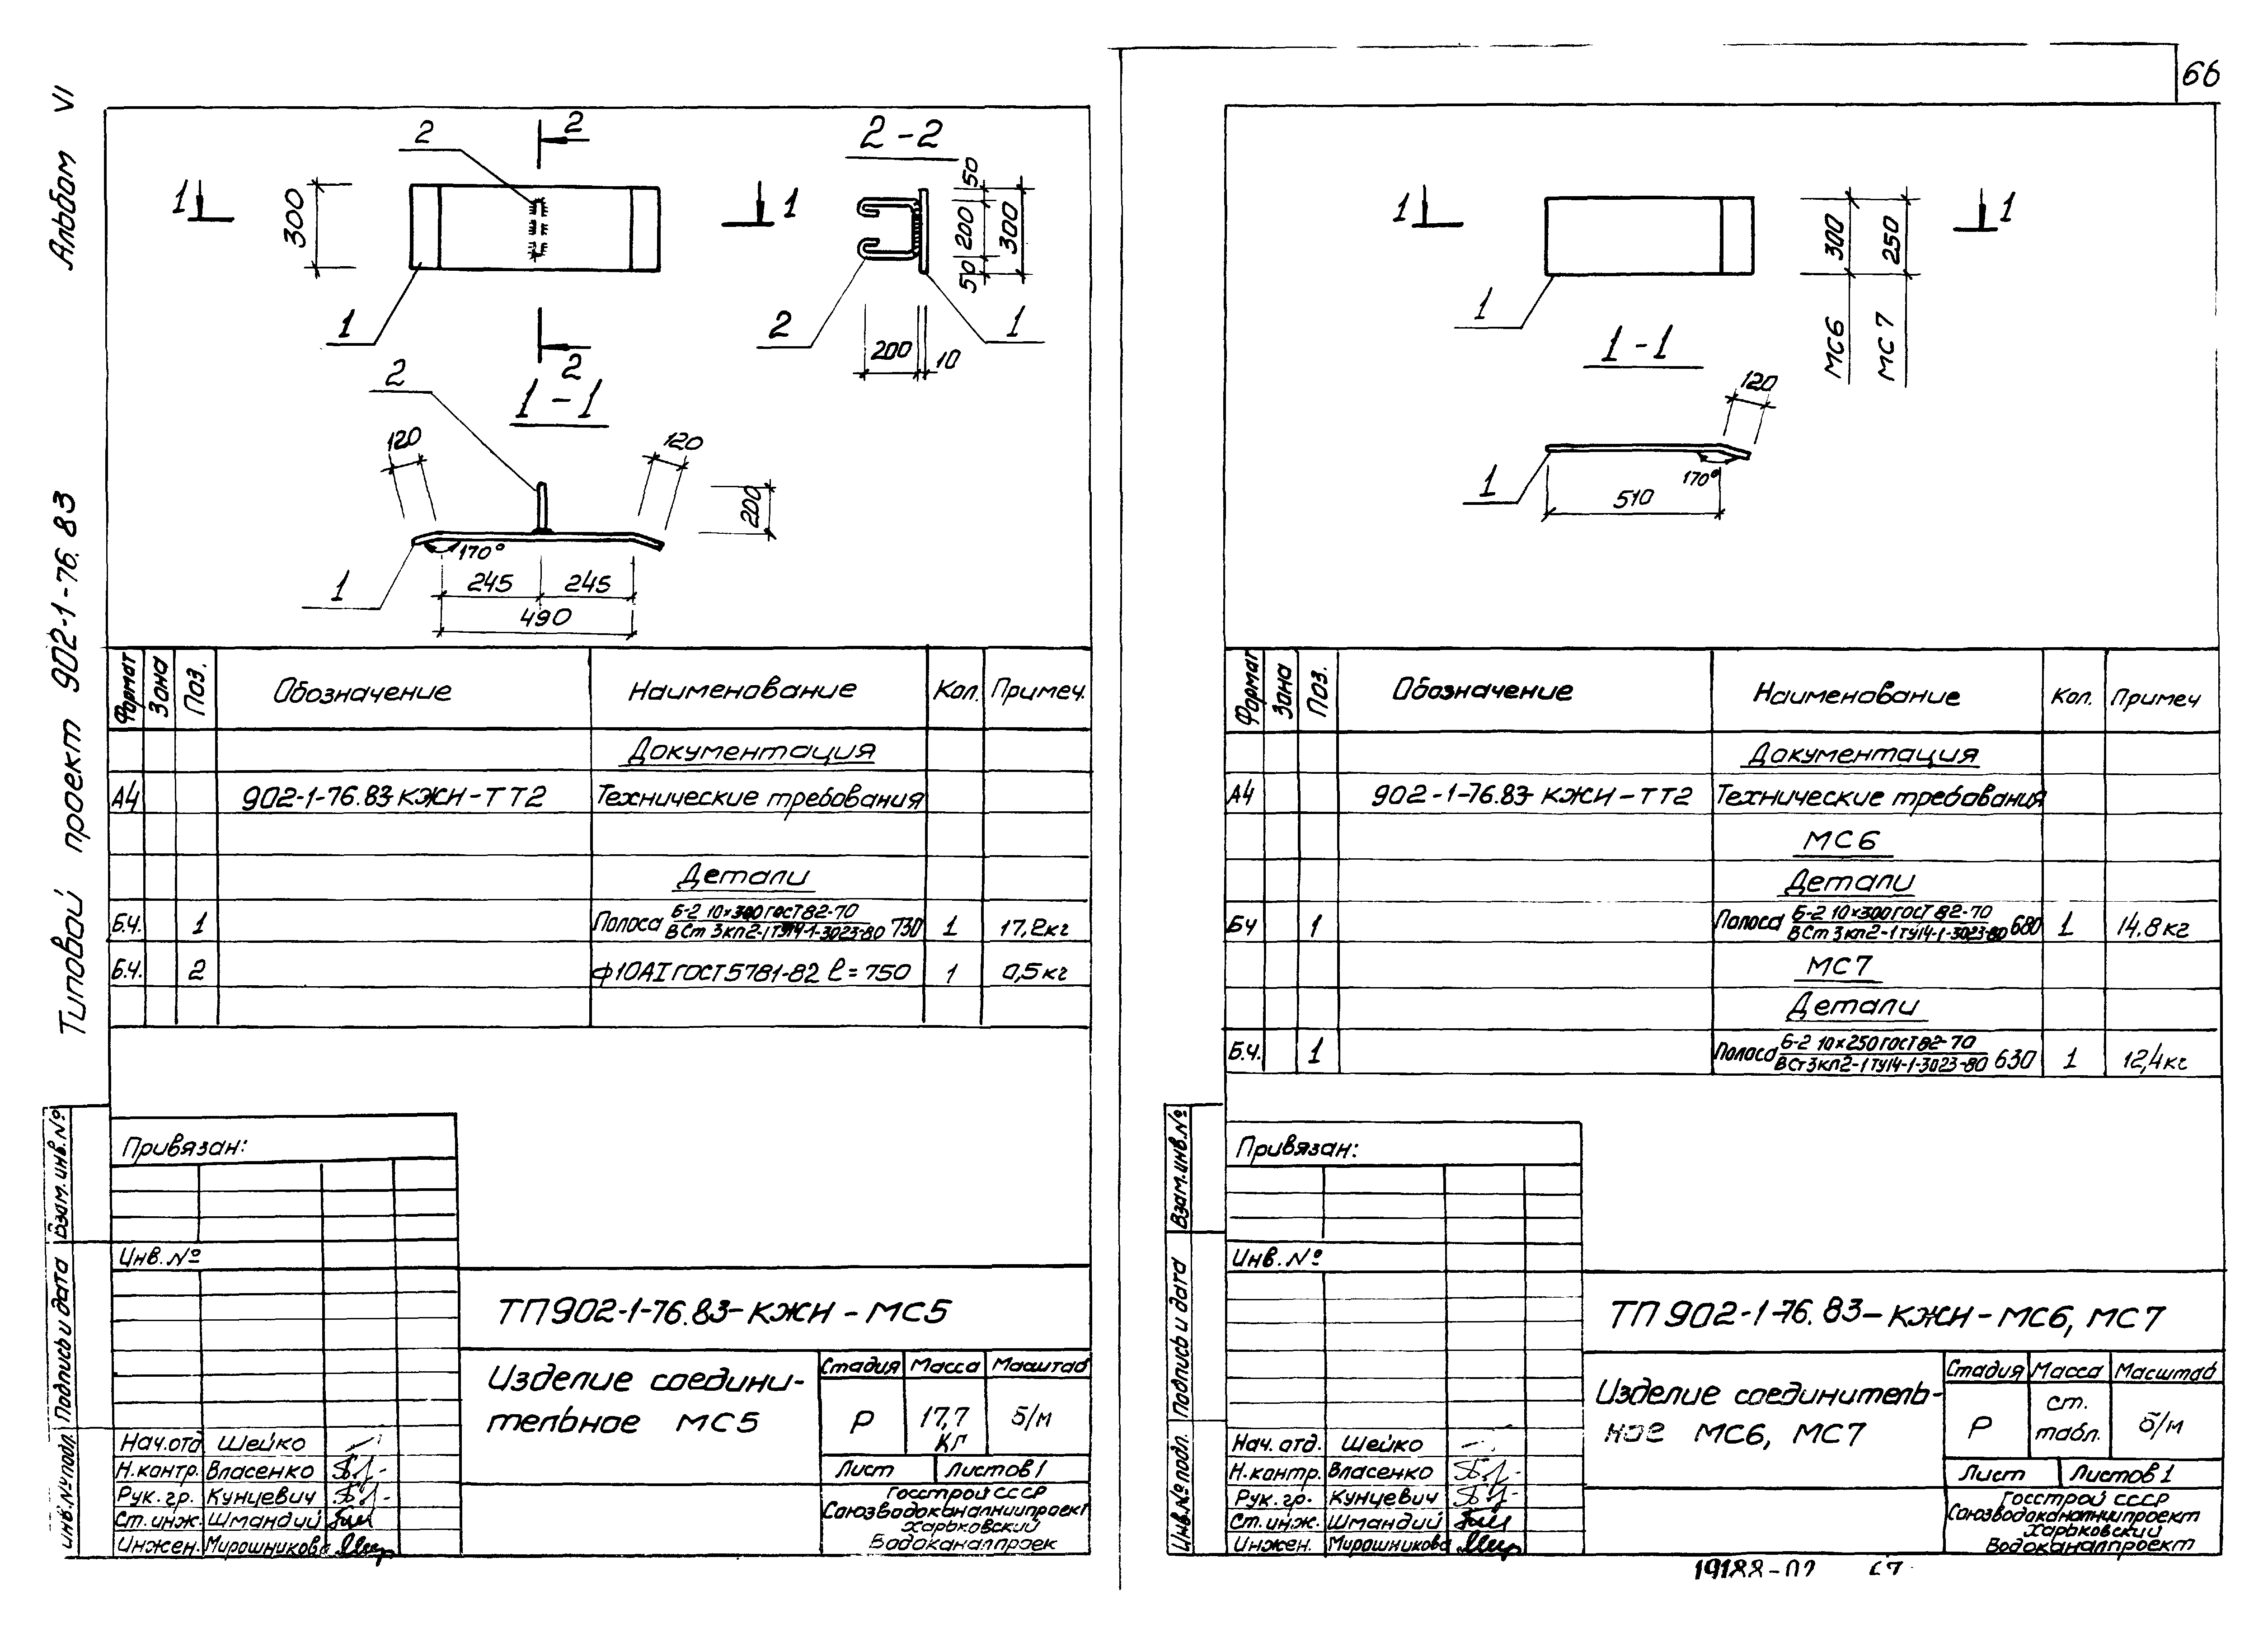 66
Альбом VI
Типовой проект 902-1-76.83
2
2
1
1
300
1
2
2-2
50
200
300
50
2
1
200
10
2
1-1
120
120
200
1
170°
245
245
490
Формат
Зона
Поз.
Обозначение
Наименование
Кол.
Примеч.
Документация
А4
902-1-76.83 КЖИ-ТТ2
Технические требования
Детали
Б.Ч.
1
Полоса Б-2 10×300 ГОСТ 82-70
ВСт 3кп2-1 ТУ14-1-3023-80 730
1
17,2кг
Б.Ч.
2
ф10АI ГОСТ 5781-82 ℓ=750
1
0,5кг
Взам.инв.№
Подпись и дата
Инв.№ подл.
Привязан:
Инв.№
ТП 902-1-76.83-КЖИ-МС5
Изделие соедини-
тельное МС5
Стадия
Масса
Масштаб
Р
17,7
кг
б/м
Лист
Листов 1
Госстрой СССР
Союзводоканалниипроект
Харьковский
Водоканалпроек
Нач.отд
Шейко
Н.контр.
Власенко
Рук.гр.
Кунцевич
Ст.инж.
Шмандий
Инжен.
Мирошникова
1
1
1
300
250
МС6
МС7
1-1
120
1
170°
510
Формат
Зона
Поз.
Обозначение
Наименование
Кол.
Примеч
Документация
А4
902-1-76.83-КЖИ-ТТ2
Технические требования
МС6
Детали
БЧ
1
Полоса Б-2 10×300 ГОСТ 82-70
ВСт 3кп2-1 ТУ14-1-3023-80 680
1
14,8кг
МС7
Детали
Б.Ч.
1
Полоса Б-2 10×250 ГОСТ 82-70
ВСт3кп2-1 ТУ14-1-3023-80 630
1
12,4кг
Взам.инв.№
Подпись и дата
Инв.№ подл.
Привязан:
Инв.№
ТП 902-1-76.83-КЖИ-МС6, МС7
Изделие соединитель-
ное МС6, МС7
Стадия
Масса
Масштаб
Р
ст.
табл.
б/м
Лист
Листов 1
Госстрой СССР
Союзводоканалниипроект
Харьковский
Водоканалпроект
Нач.отд.
Шейко
Н.контр.
Власенко
Рук.гр.
Кунцевич
Ст.инж.
Шмандий
Инжен.
Мирошникова